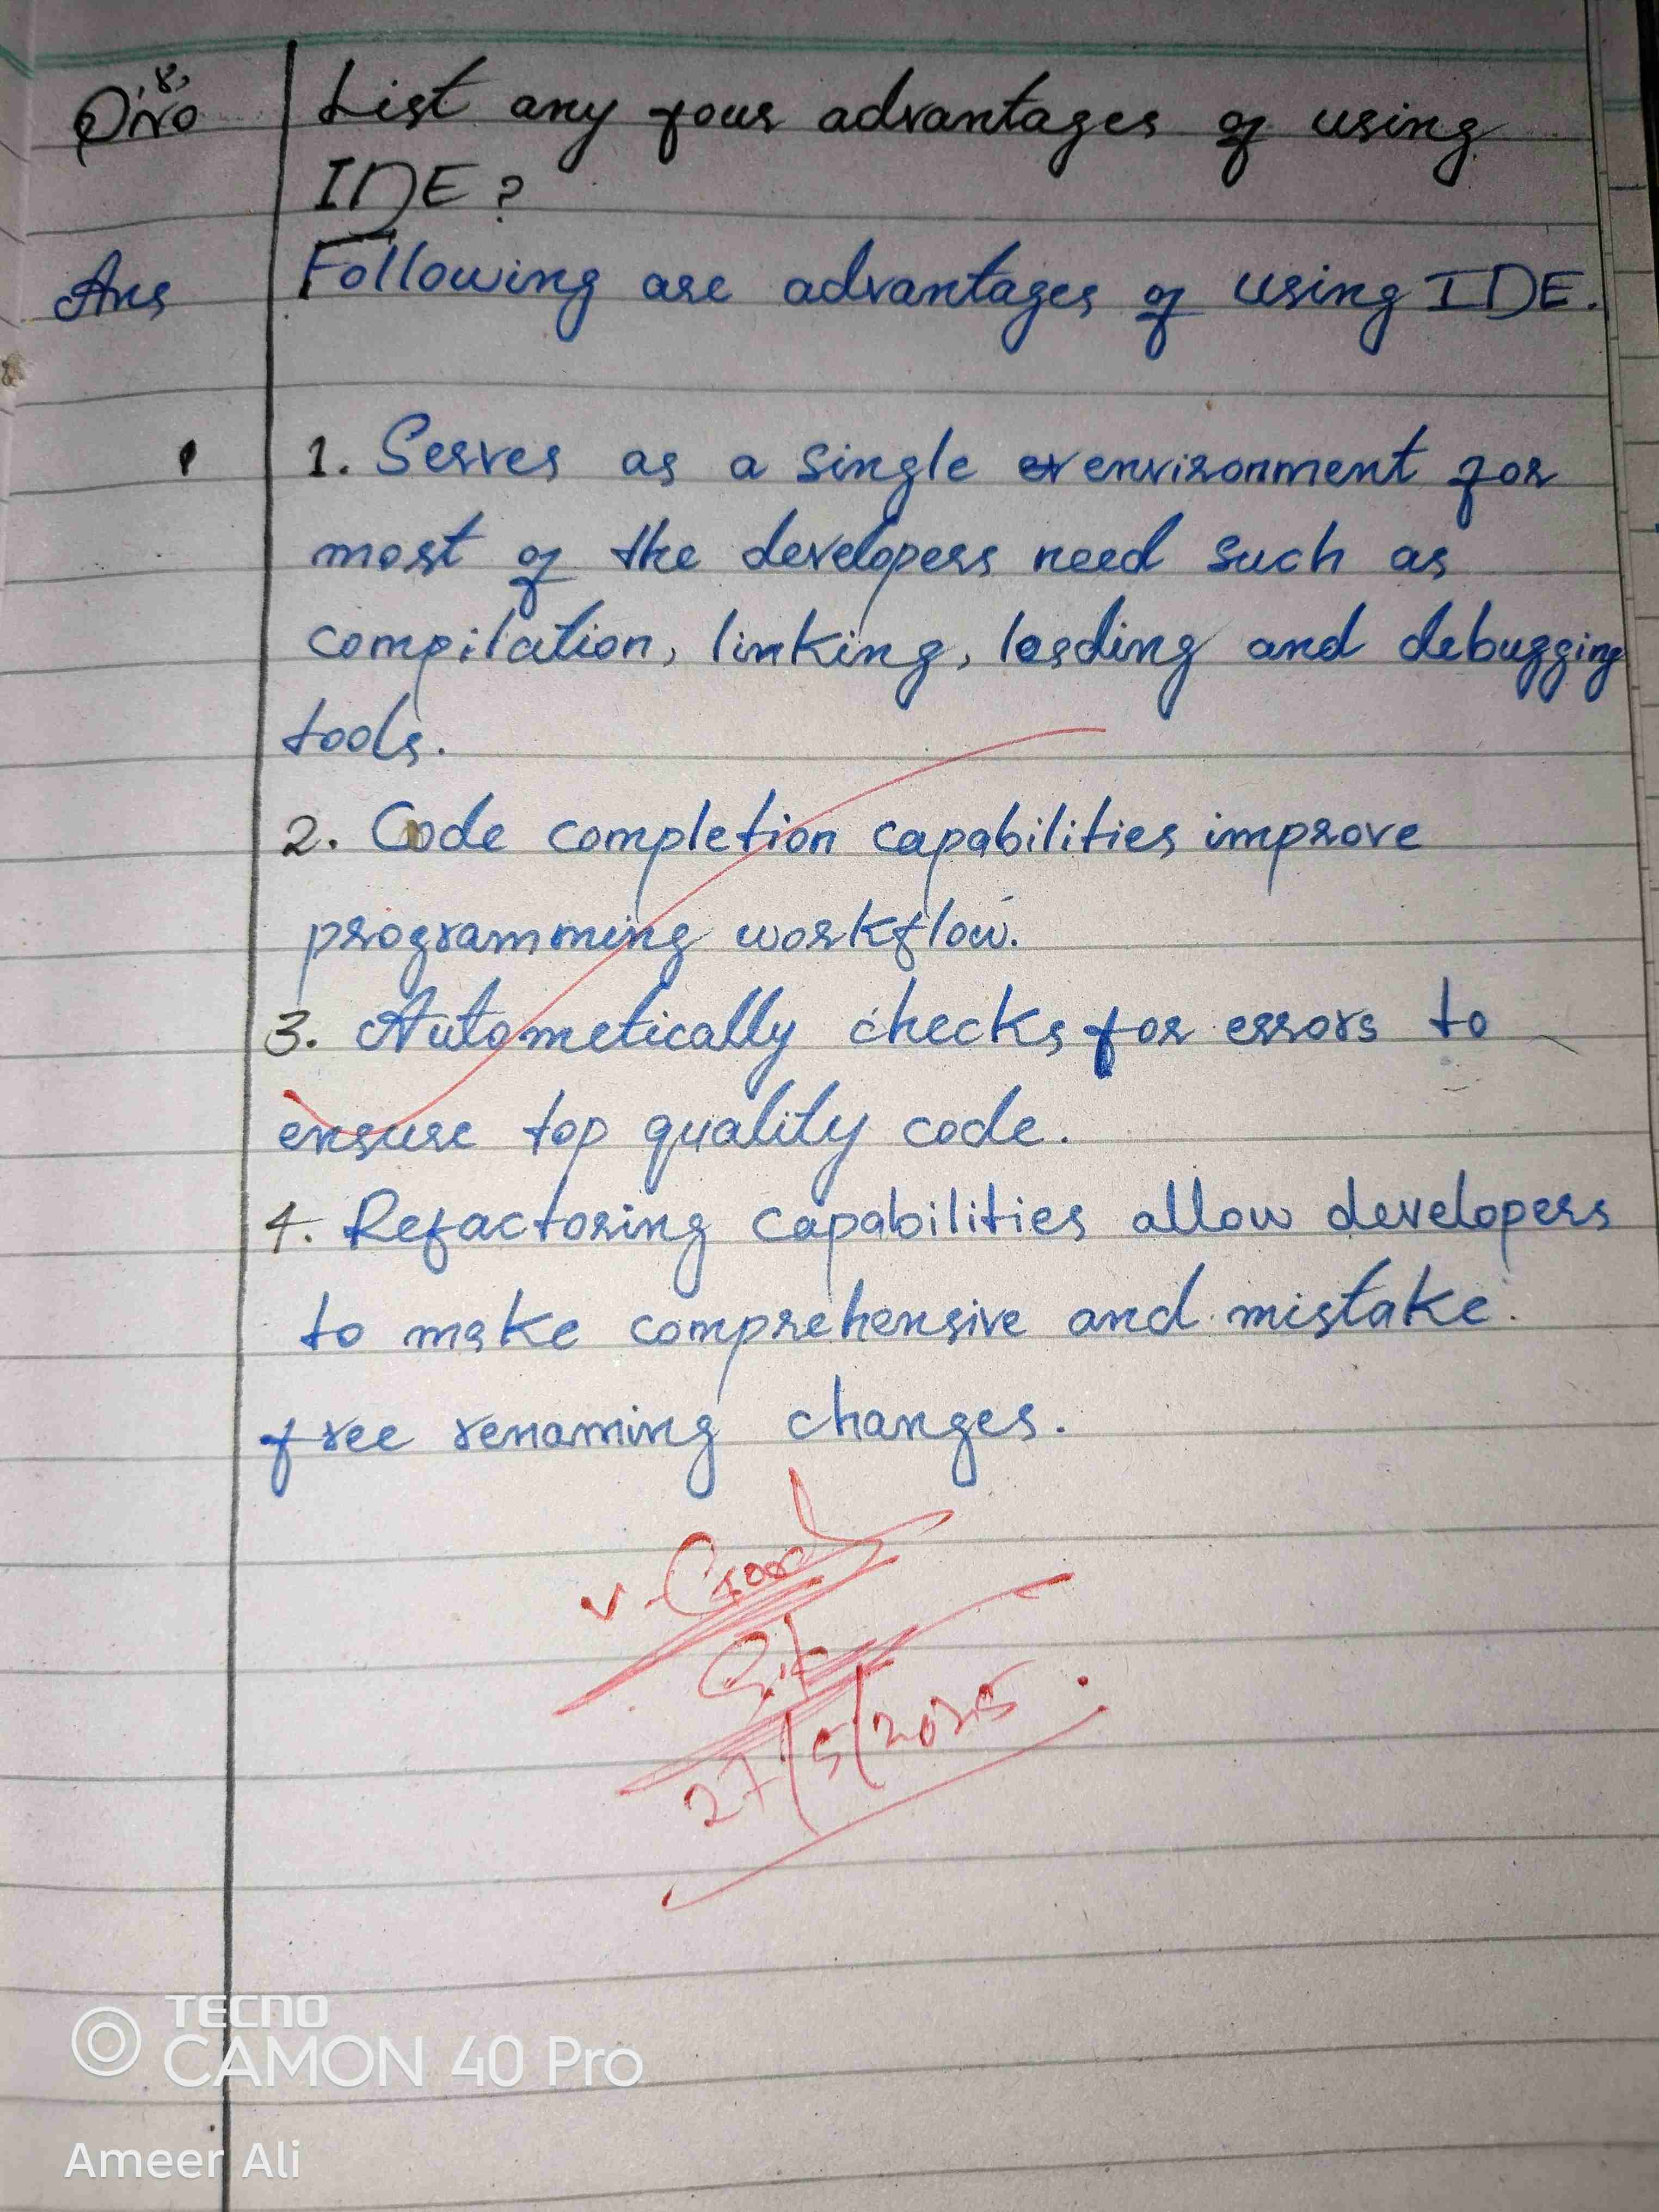 Q.No 8,
List any four advantages of using
IDE?
Ans
Following are advantages of using IDE.
1. Serves as a single environment for
most of the developers need such as
compilation, linking, loading and debugging
tools.
2. Code completion capabilities improve
programming workflow.
3. Autometically checks for errors to
ensure top quality code.
4. Refactoring capabilities allow developers
to make comprehensive and mistake
free renaming changes.
v. Good
27/5/2025
TECNO
CAMON 40 Pro
Ameer Ali